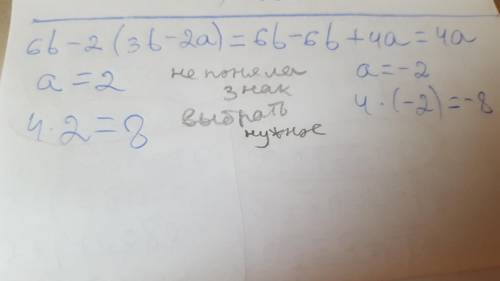 6b-2(3b-2a)=6b-6b+4a=4a
a=2
4·2=8
не поняла
знак
выбрать
нужное
a=-2
4·(-2)=-8